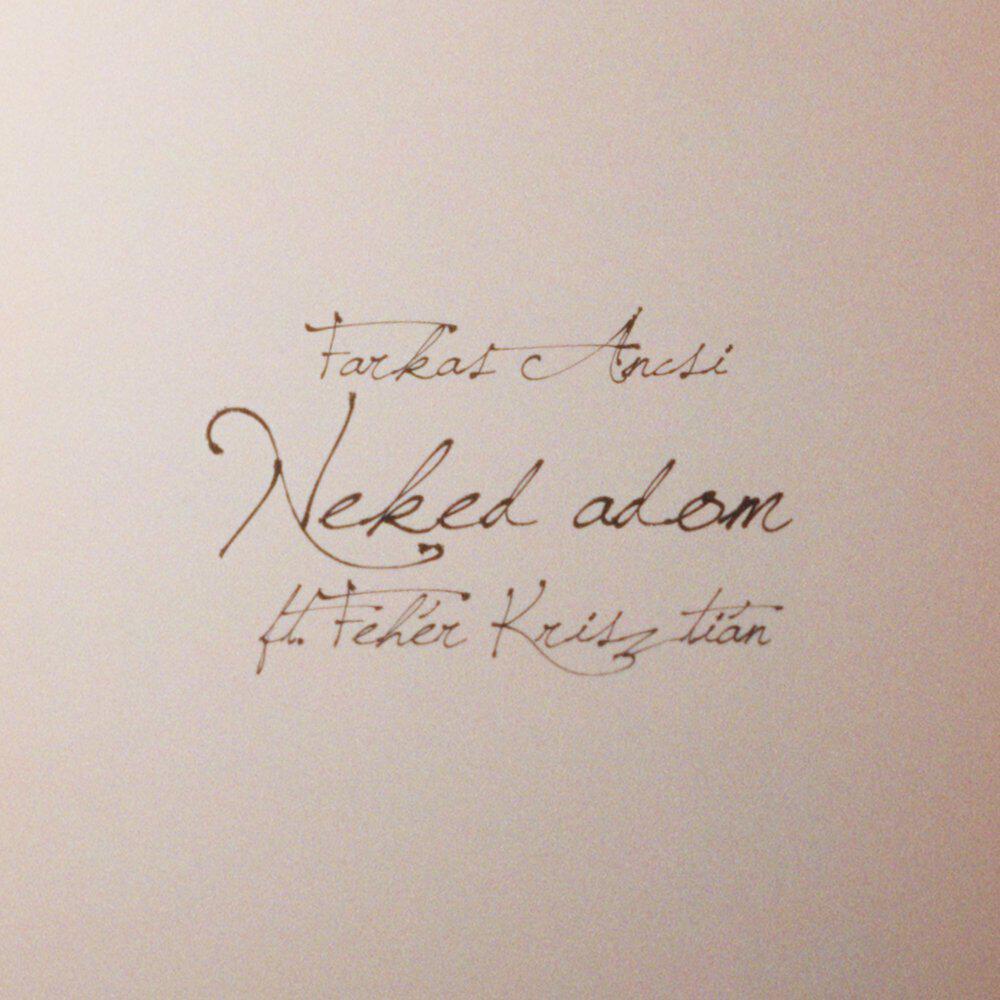 Farkas Ancsi
Neked adom
ft. Fehér Krisztián